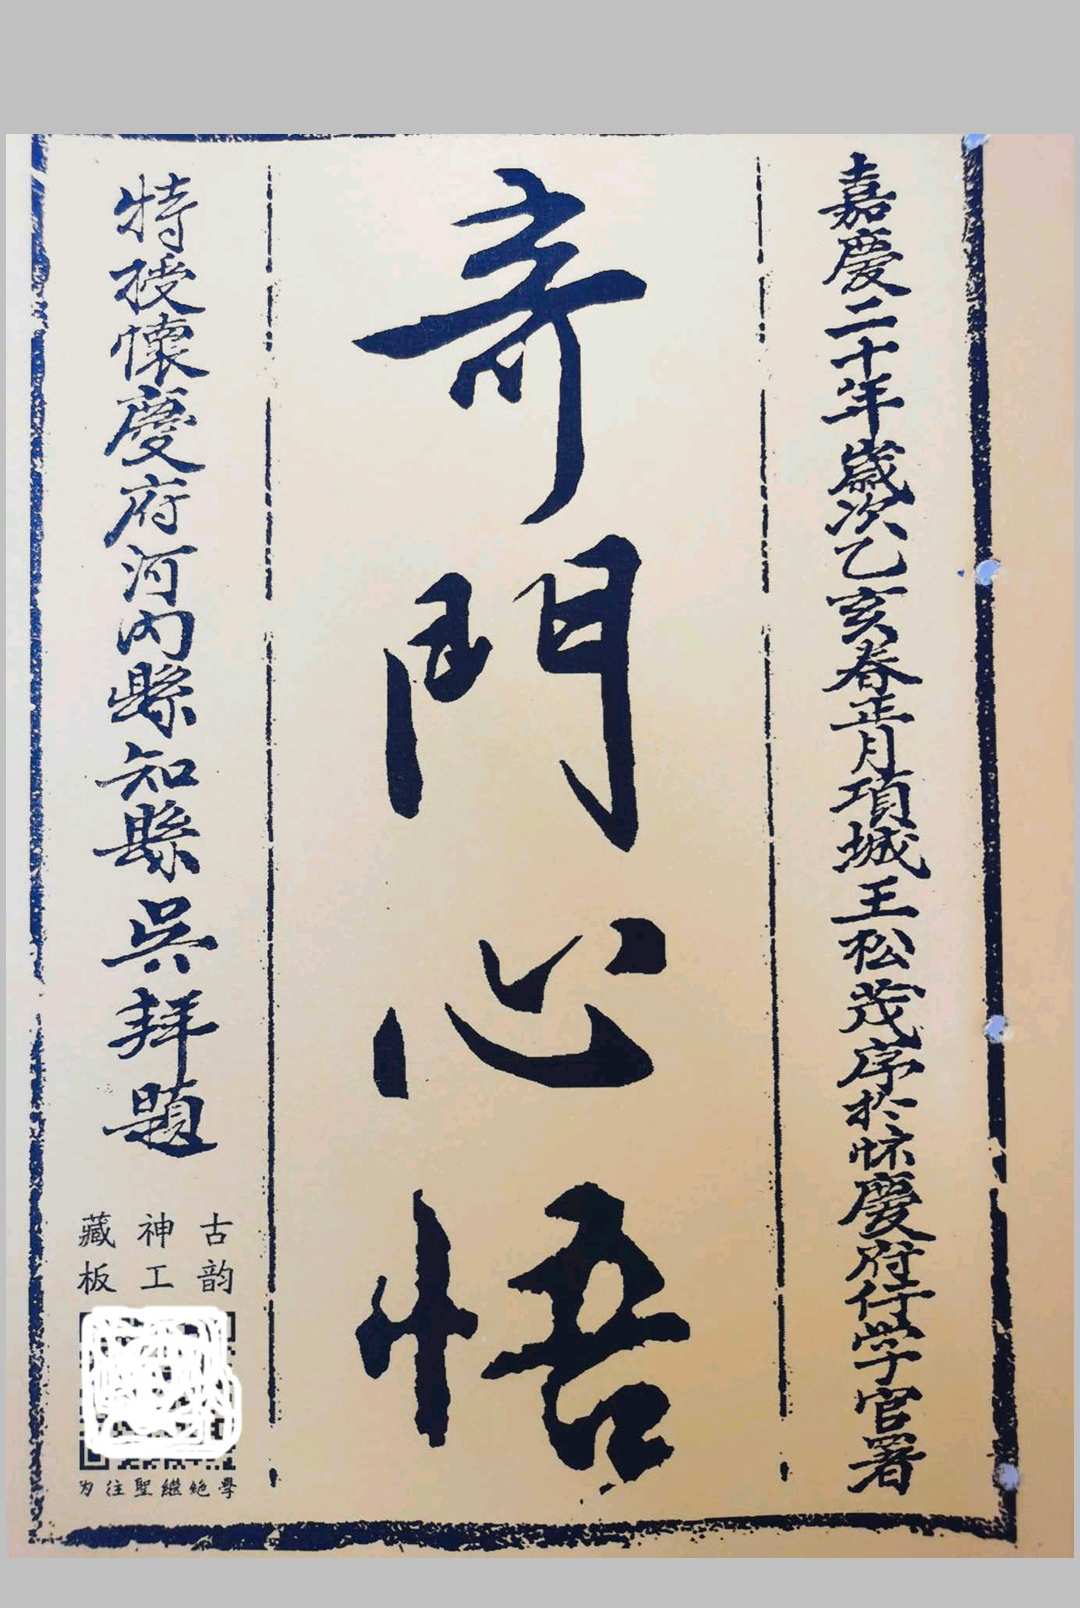 嘉慶二十年歲次乙亥春正月項城王松茂序於怀慶府学官署
奇門心悟
特授懷慶府河内縣知縣吳拜題
古韵
神工
藏板
为往聖繼绝學